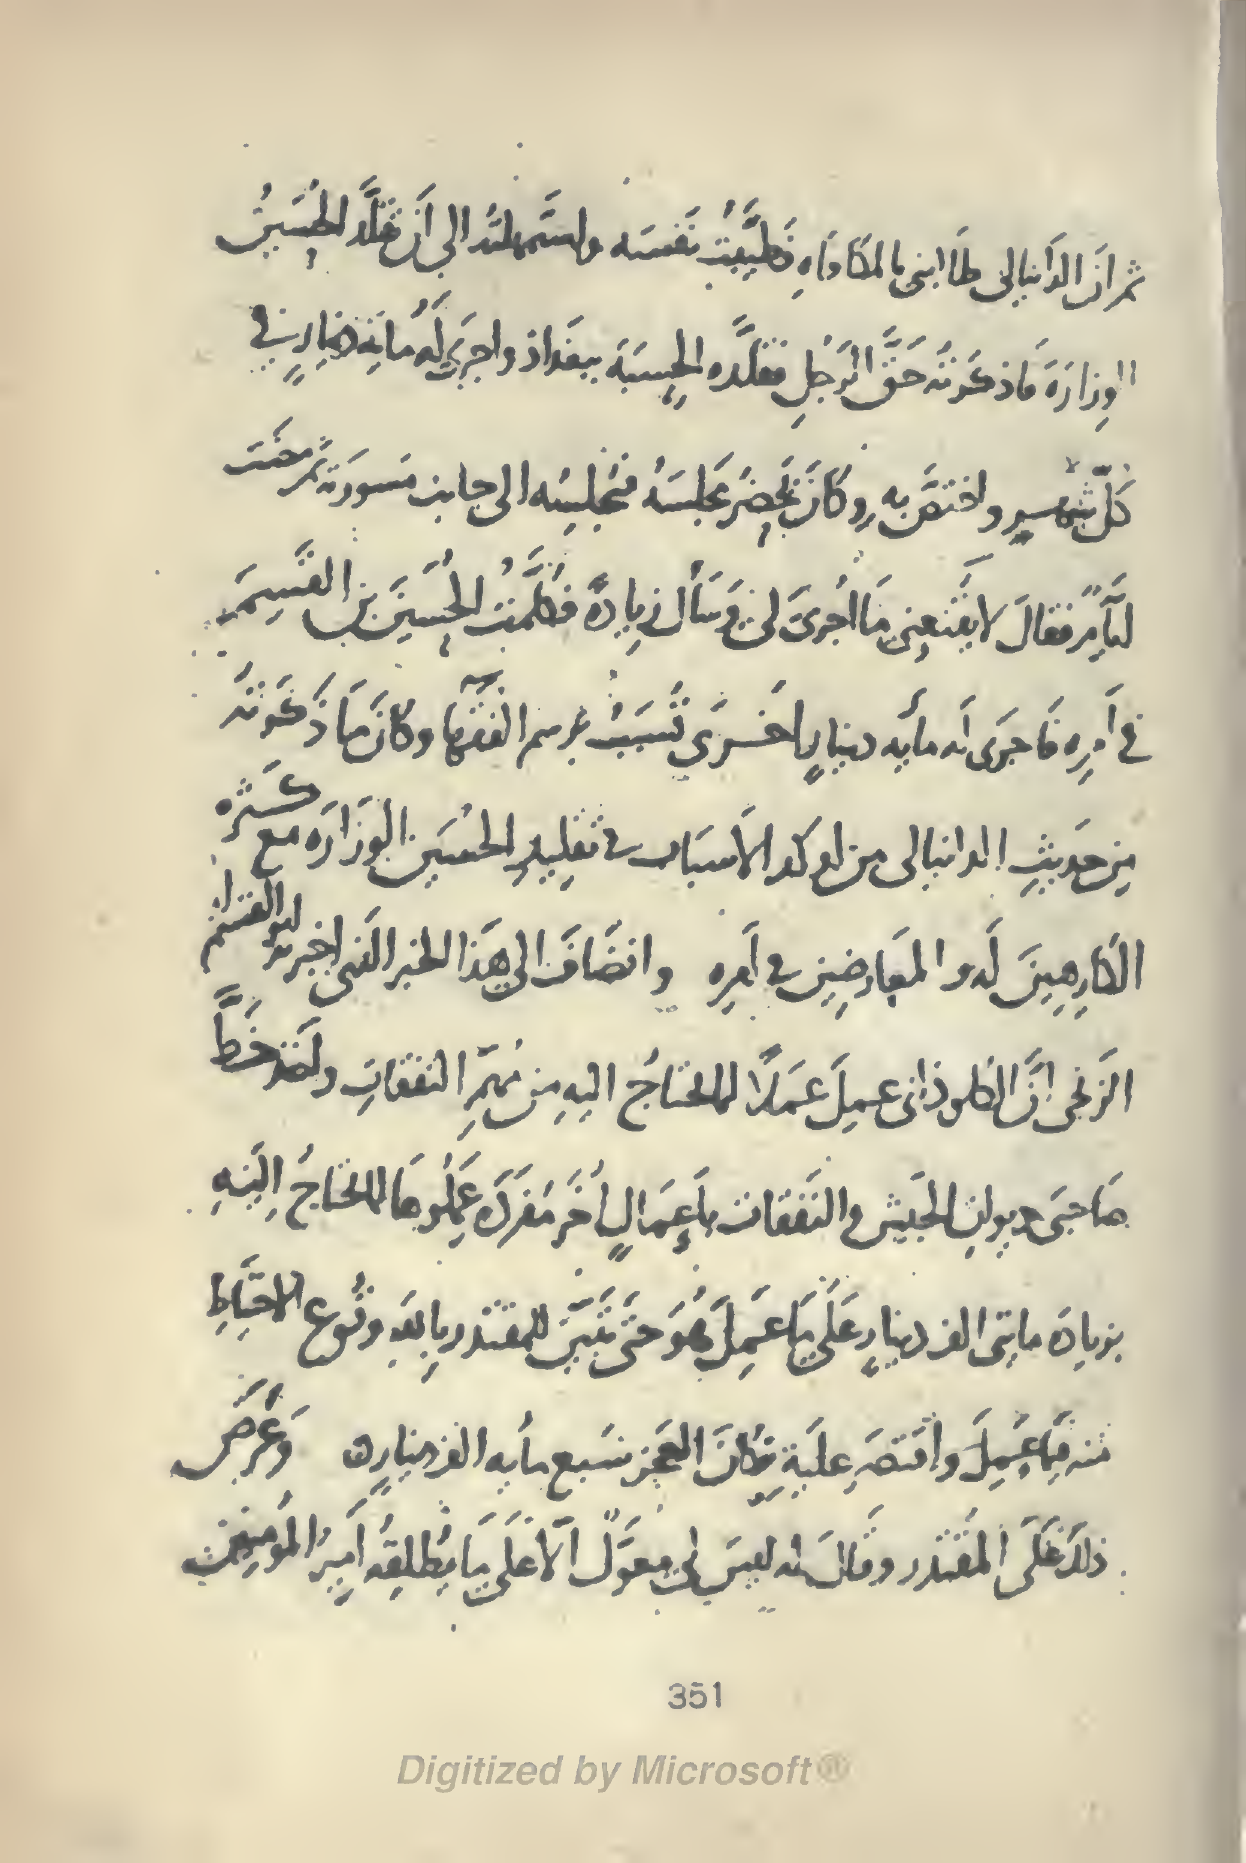 ثم ان الدانيالى طالبنى بالمكافاه فطيبت نفسه واستمهلته الى ان تقلد الحسين
الوزارة فاذكرته حق الرجل فقلده الحسبة ببغداذ واجرى له مائة دينار في
كل شهر واختص به وكان يحضر مجلسه فيجلسه الى جانب مسورته ثم مضت
ايام فقال لا يقنعنى ما اجرى لى وسأل زيادة فكلمت الحسين بن القسم
في امره فاجرى له مأية دينار اخرى تسبب برسم الفقها وكان ما ذكرته
من حديث الدانيالى من اوكد الاسباب في تقليد الحسين الوزاره مع كثره
الكارهين له والمعارضين في امره وانضاف الى هذا الخبر الذى اخبر به ابو القسم ابن
الزنجى ان الكلوذانى عمل عملا لما يحتاج اليه من مهم النفقات واخذ خط
صاحبى ديوان الجيش والنفقات باعمال اخر مفردة عملوها لما يحتاج اليه
بزيادة مايتى الف دينار على ما عمل هو حتى تبين للمقتدر بالله وقوع الاحتياط
منه فيما عمل واقتصر عليه فكان العجز سبع مأيه الف دينار وعرض
ذلك على المقتدر وقال له ليس لى معول الا على ما يطلقه امير المؤمنين
351
Digitized by Microsoft®